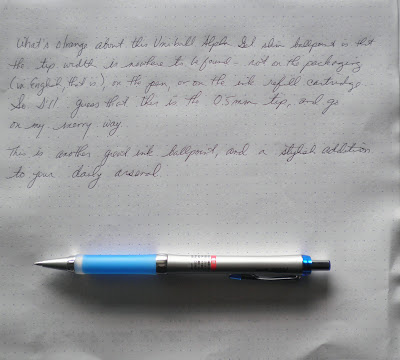 What's strange about this Uniball Alpha Gel slim ballpoint is that
the tip width is nowhere to be found - not on the packaging
(in English, that is), on the pen, or on the ink refill cartridge.
So I'll guess that this is the 0.5mm tip, and go
on my merry way.
This is another great ink ballpoint, and a stylish addition
to your daily arsenal.